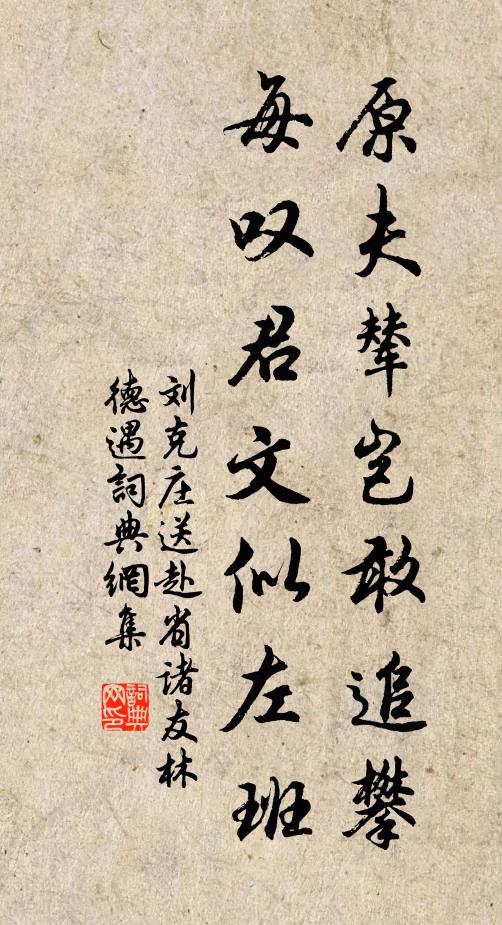 原夫辇岂敢追攀
每叹君文似左班
刘克庄送赴省诸友林
德遇詞典網集
詞典
网印